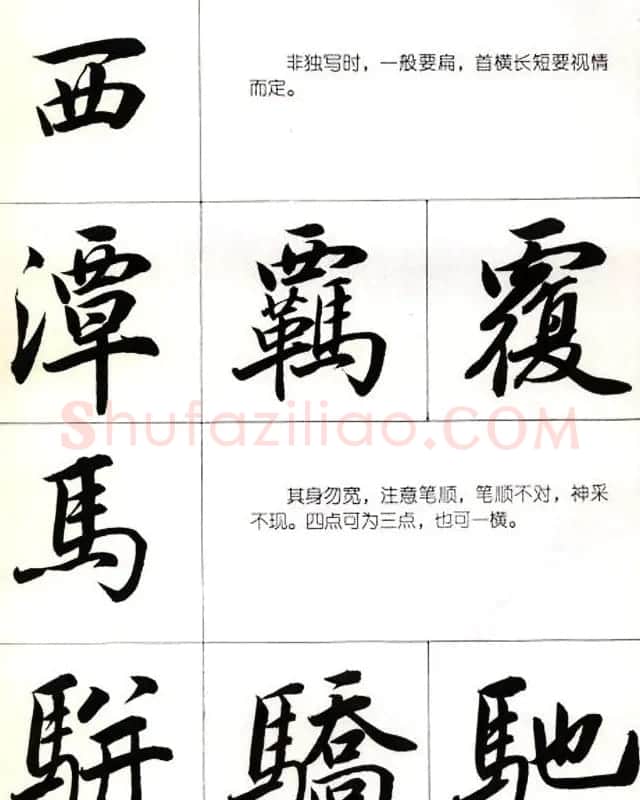 西
非独写时，一般要扁，首横长短要视情
而定。
潭 覊 覆
Shufaziliao.COM
馬
其身勿宽，注意笔顺，笔顺不对，神采
不现。四点可为三点，也可一横。
駢 驕 馳